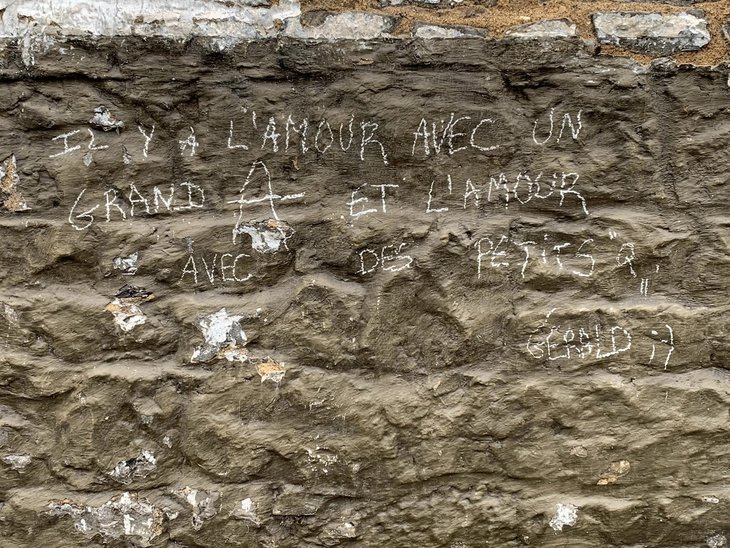 IL Y A L'AMOUR AVEC UN
GRAND A ET L'AMOUR
AVEC DES PETITS "a"
GÉRALD ;)